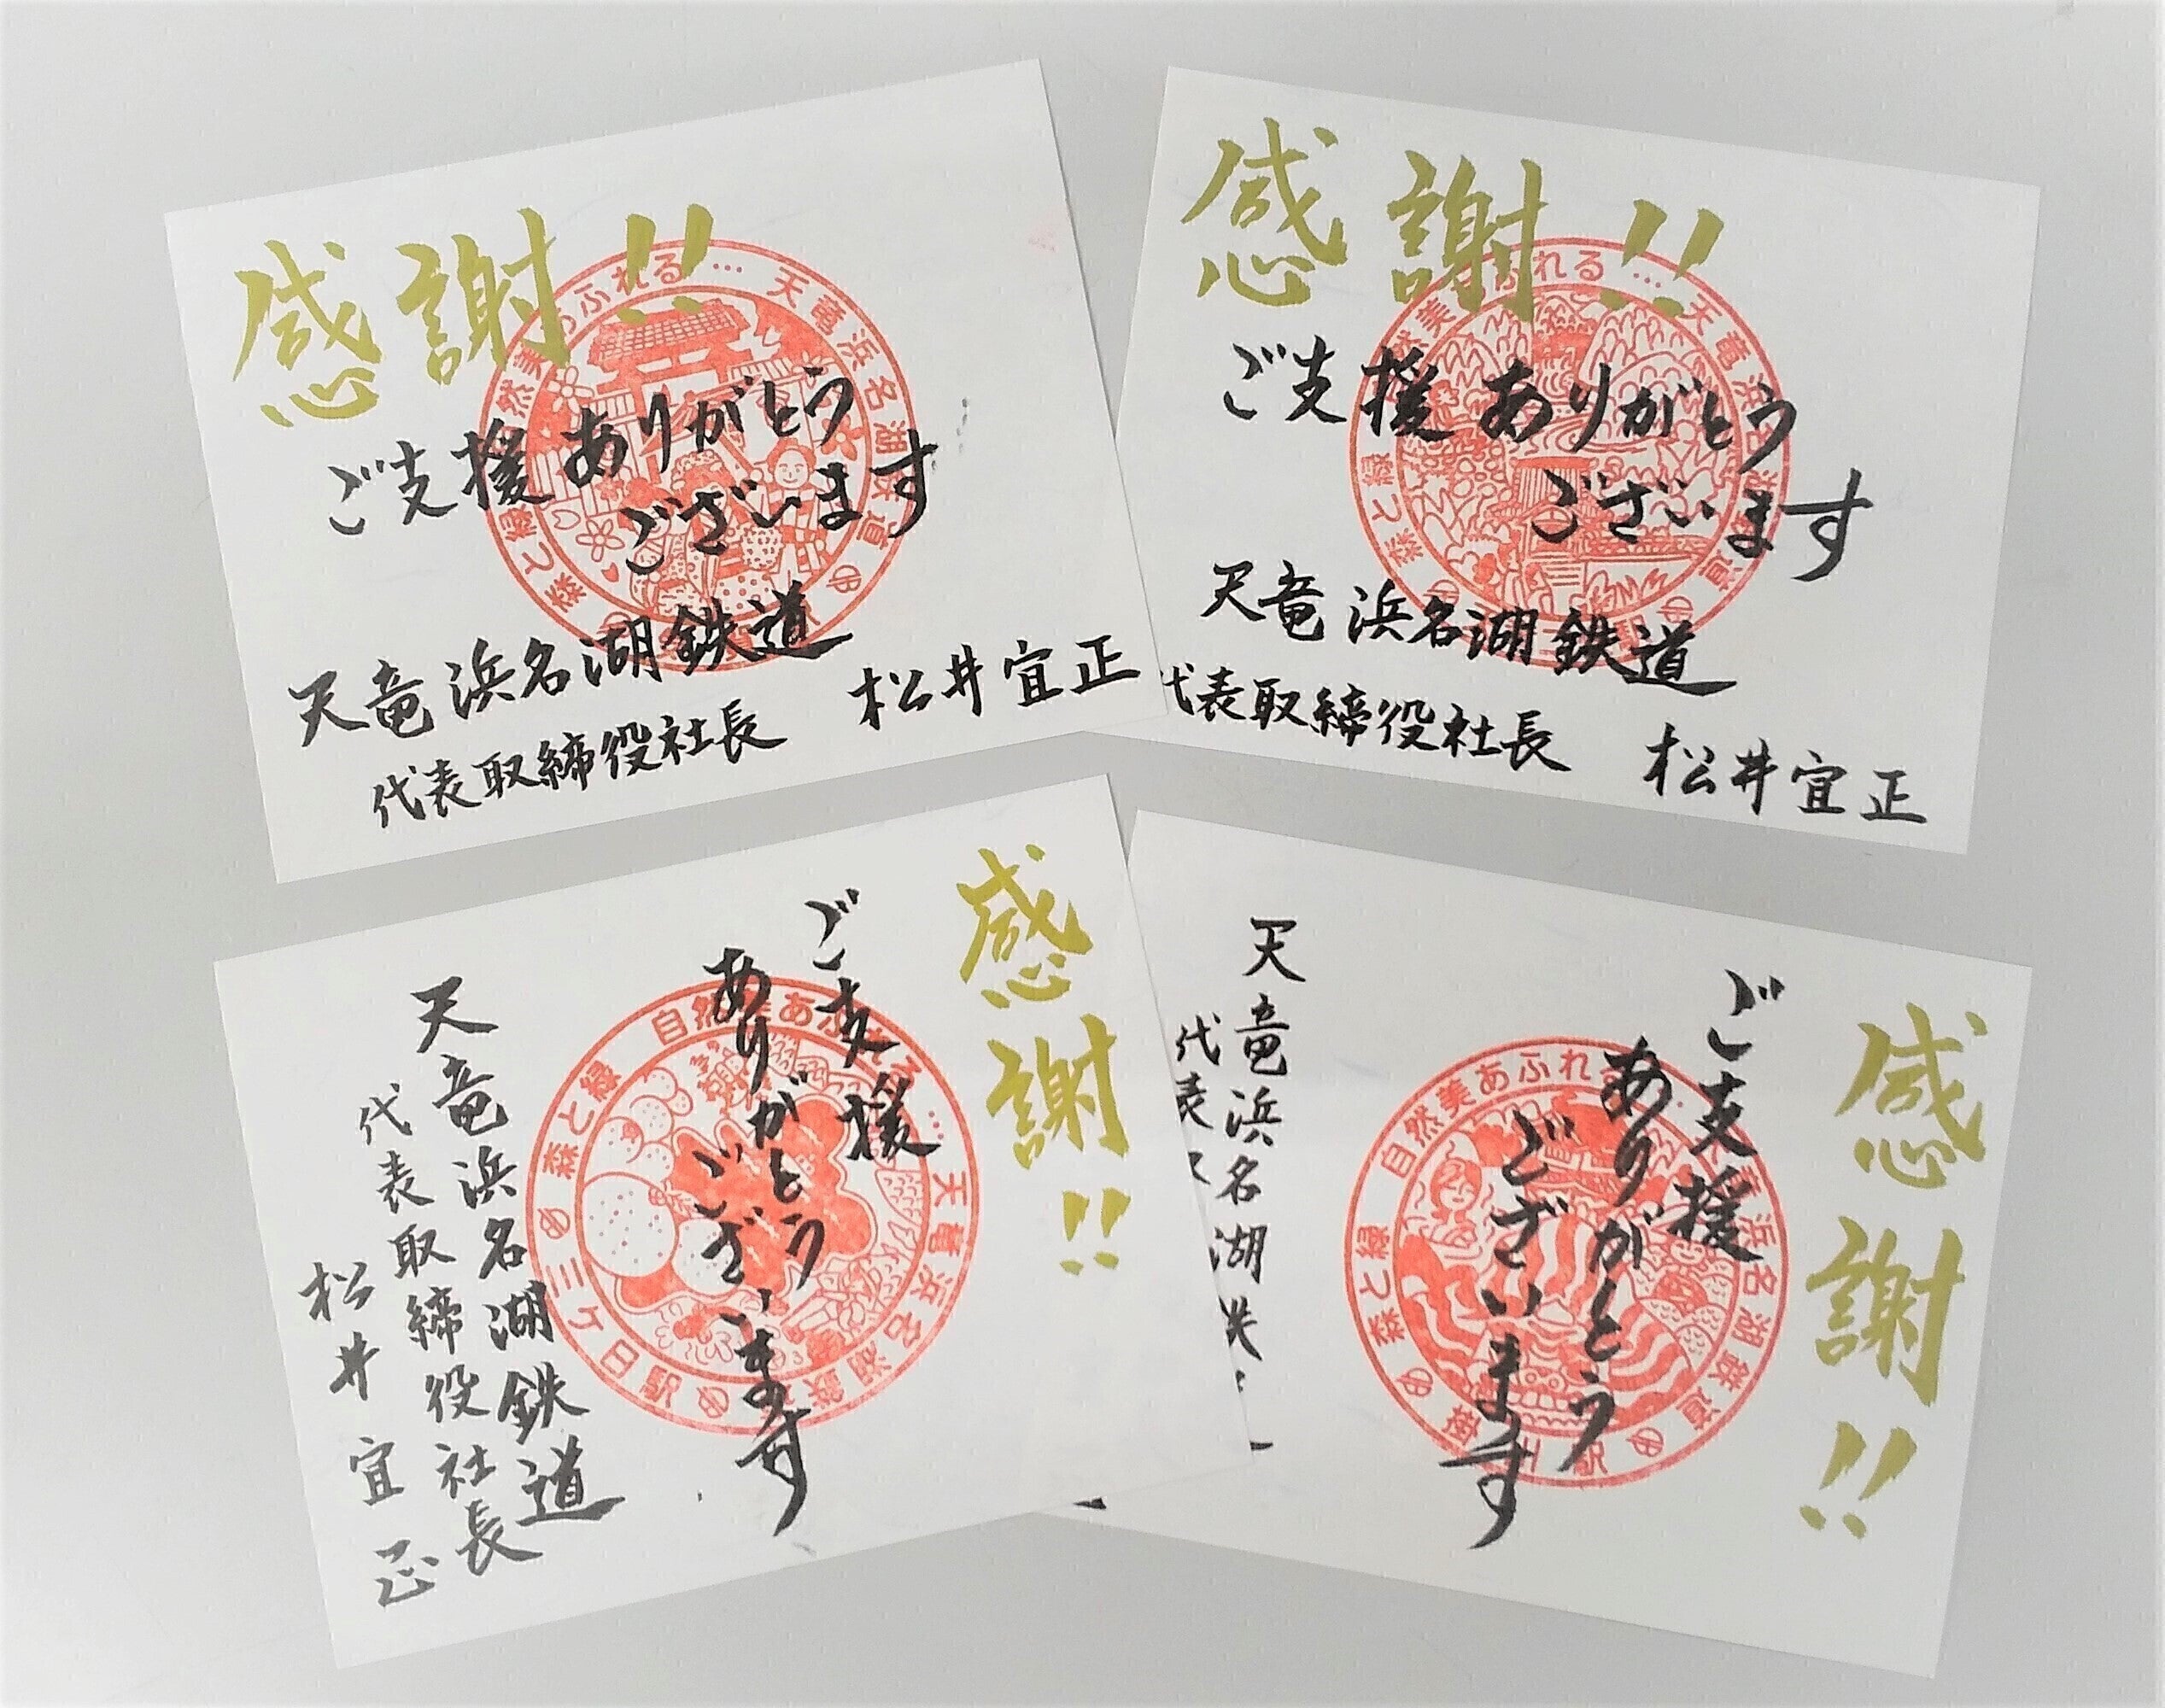 感謝!!
ご支援ありがとう
ございます
天竜浜名湖鉄道
代表取締役社長 松井宜正
森と緑 自然美あふれる… 天竜浜名湖鉄道
感謝!!
ご支援ありがとう
ございます
天竜浜名湖鉄道
代表取締役社長 松井宜正
森と緑 自然美あふれる… 天竜浜名湖鉄道
感謝!!
ご支援
ありがとう
ございます
天竜浜名湖鉄道
代表取締役社長
松井宜正
森と緑 自然美あふれる… 天竜浜名湖鉄道
三ケ日駅
感謝!!
ご支援
ありがとう
ございます
天竜浜名湖鉄
代表
森と緑 自然美あふれる 天竜浜名湖鉄道
駅